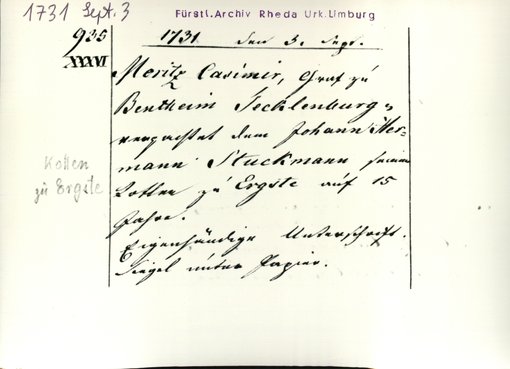 1731 Sept. 3
Fürstl. Archiv Rheda Urk. Limburg
935
XXXVI
1731 den 3. Sept.
Moritz Casimir, Graf zu
Bentheim Tecklenburg,
verpachtet dem Johann Her-
mann Stuckmann seinen
Kotten zu Ergste auf 15
Jahre.
Eigenhändige Unterschrift.
Siegel unter Papier.
Kotten
zu Ergste